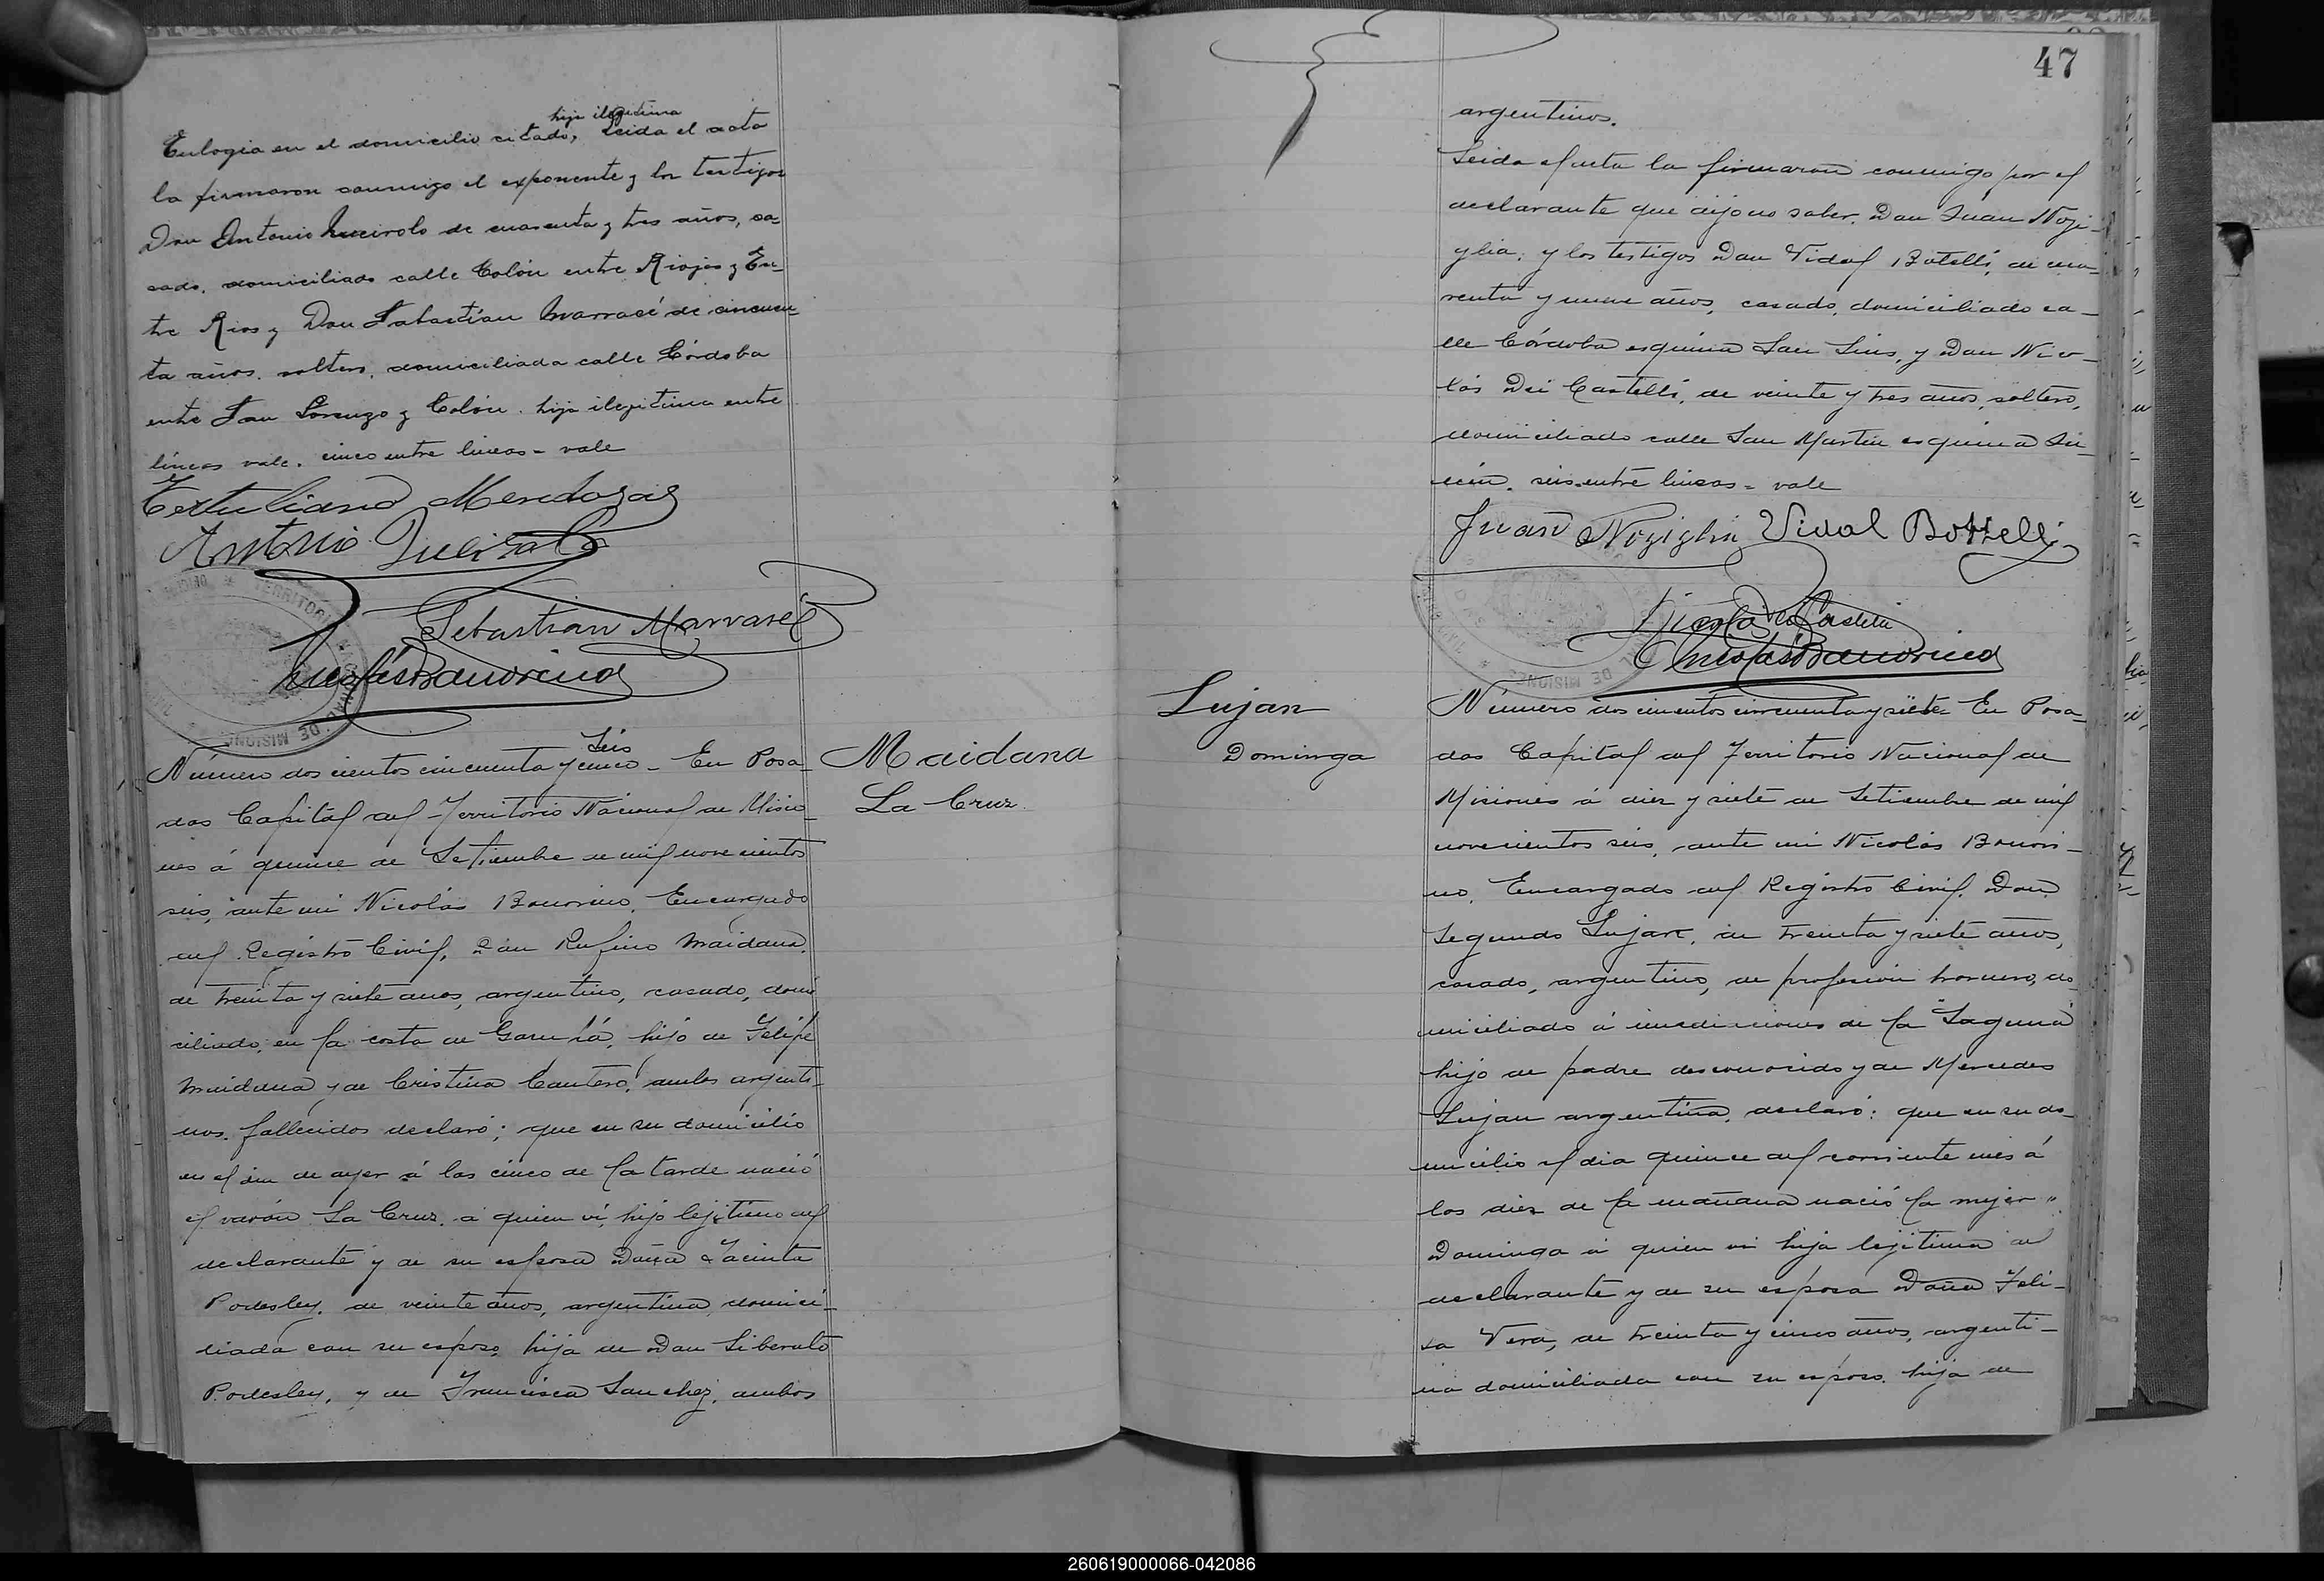 hija ilegítima
Eulogia en el domicilio citado, Leida el acta
la firmaron conmigo el exponente y los testigos
Don Antonio Lucirolo de cuarenta y tres años, ca-
sado, domiciliado calle Colón entre Rioja y En-
tre Rios y Don Sabastían Marrasé de cincuen-
ta años, soltero, domiciliada calle Córdoba
entre San Lorenzo y Colón. hija ilegitima entre
líneas vale. cinco entre lineas - vale
Tertuliano Mendosa
Antonio
Sebastian Marrasé
Nicolás Bonorino
Seis
Número dos cientos cincuenta y cinco - En Posa-
das Capital del Territorio Nacional de Misio-
nes á quince de Setiembre de mil novecientos
seis, ante mi Nicolás Bonorino, Encargado
del Registro Civil, Don Rufino Maidana,
de treinta y siete años, argentino, casado, domi-
ciliado, en la costa de Garupá, hijo de Felípe
Maidana y de Cristina Cantero, ambos argenti-
nos. fallecidos declaró; que en su domicilio
en el dia de ayer á las cinco de la tarde nació
el varón La Cruz, á quien ví, hijo lejítimo del
declarante y de su esposa Doña Jacinta
Podesley, de veinte años, argentina, domici-
liada con su esposo, hija de Don Liberato
Podesley, y de Francisca Sanchez, ambos
Maidana
La Cruz
47
argentinos.
Leida el acta la firmaron conmigo por el
declarante que dijo no saber, Don Juan Nozi-
glia, y los testigos Don Vidal Botelli, de cua-
renta y nueve años, casado, domiciliado ca-
lle Córdoba esquina San Luis, y Don Nico-
lás Dei Castelli, de veinte y tres años, soltero,
domiciliado calle San Martin esquina
seis entre lineas = vale
Juan Noziglia Vidal Bottelli
Nicolas
Nicolás Bonorino
Lujan
Dominga
Número dos cientos cincuenta y siete - En Posa-
das Capital del Territorio Nacional de
Misiones á diez y siete de Setiembre de mil
novecientos seis, ante mi Nicolás Bonori-
no, Encargado del Registro Civil, Don
Segundo Lujan, de treinta y siete años,
casado, argentino, de profesión hornero, do-
miciliado á inmediaciones de la "Laguna"
hijo de padre desconocido y de Mercedes
Lujan argentina, declaró: que en su do-
micilio el dia quince del corriente mes á
las diez de la mañana nació la mujer "
Dominga á quien vi hija lejitima del
declarante y de su esposa Doña Feli-
sa Vera, de treinta y cinco años, argenti-
na domiciliada con su esposo, hija de
260619000066-042086